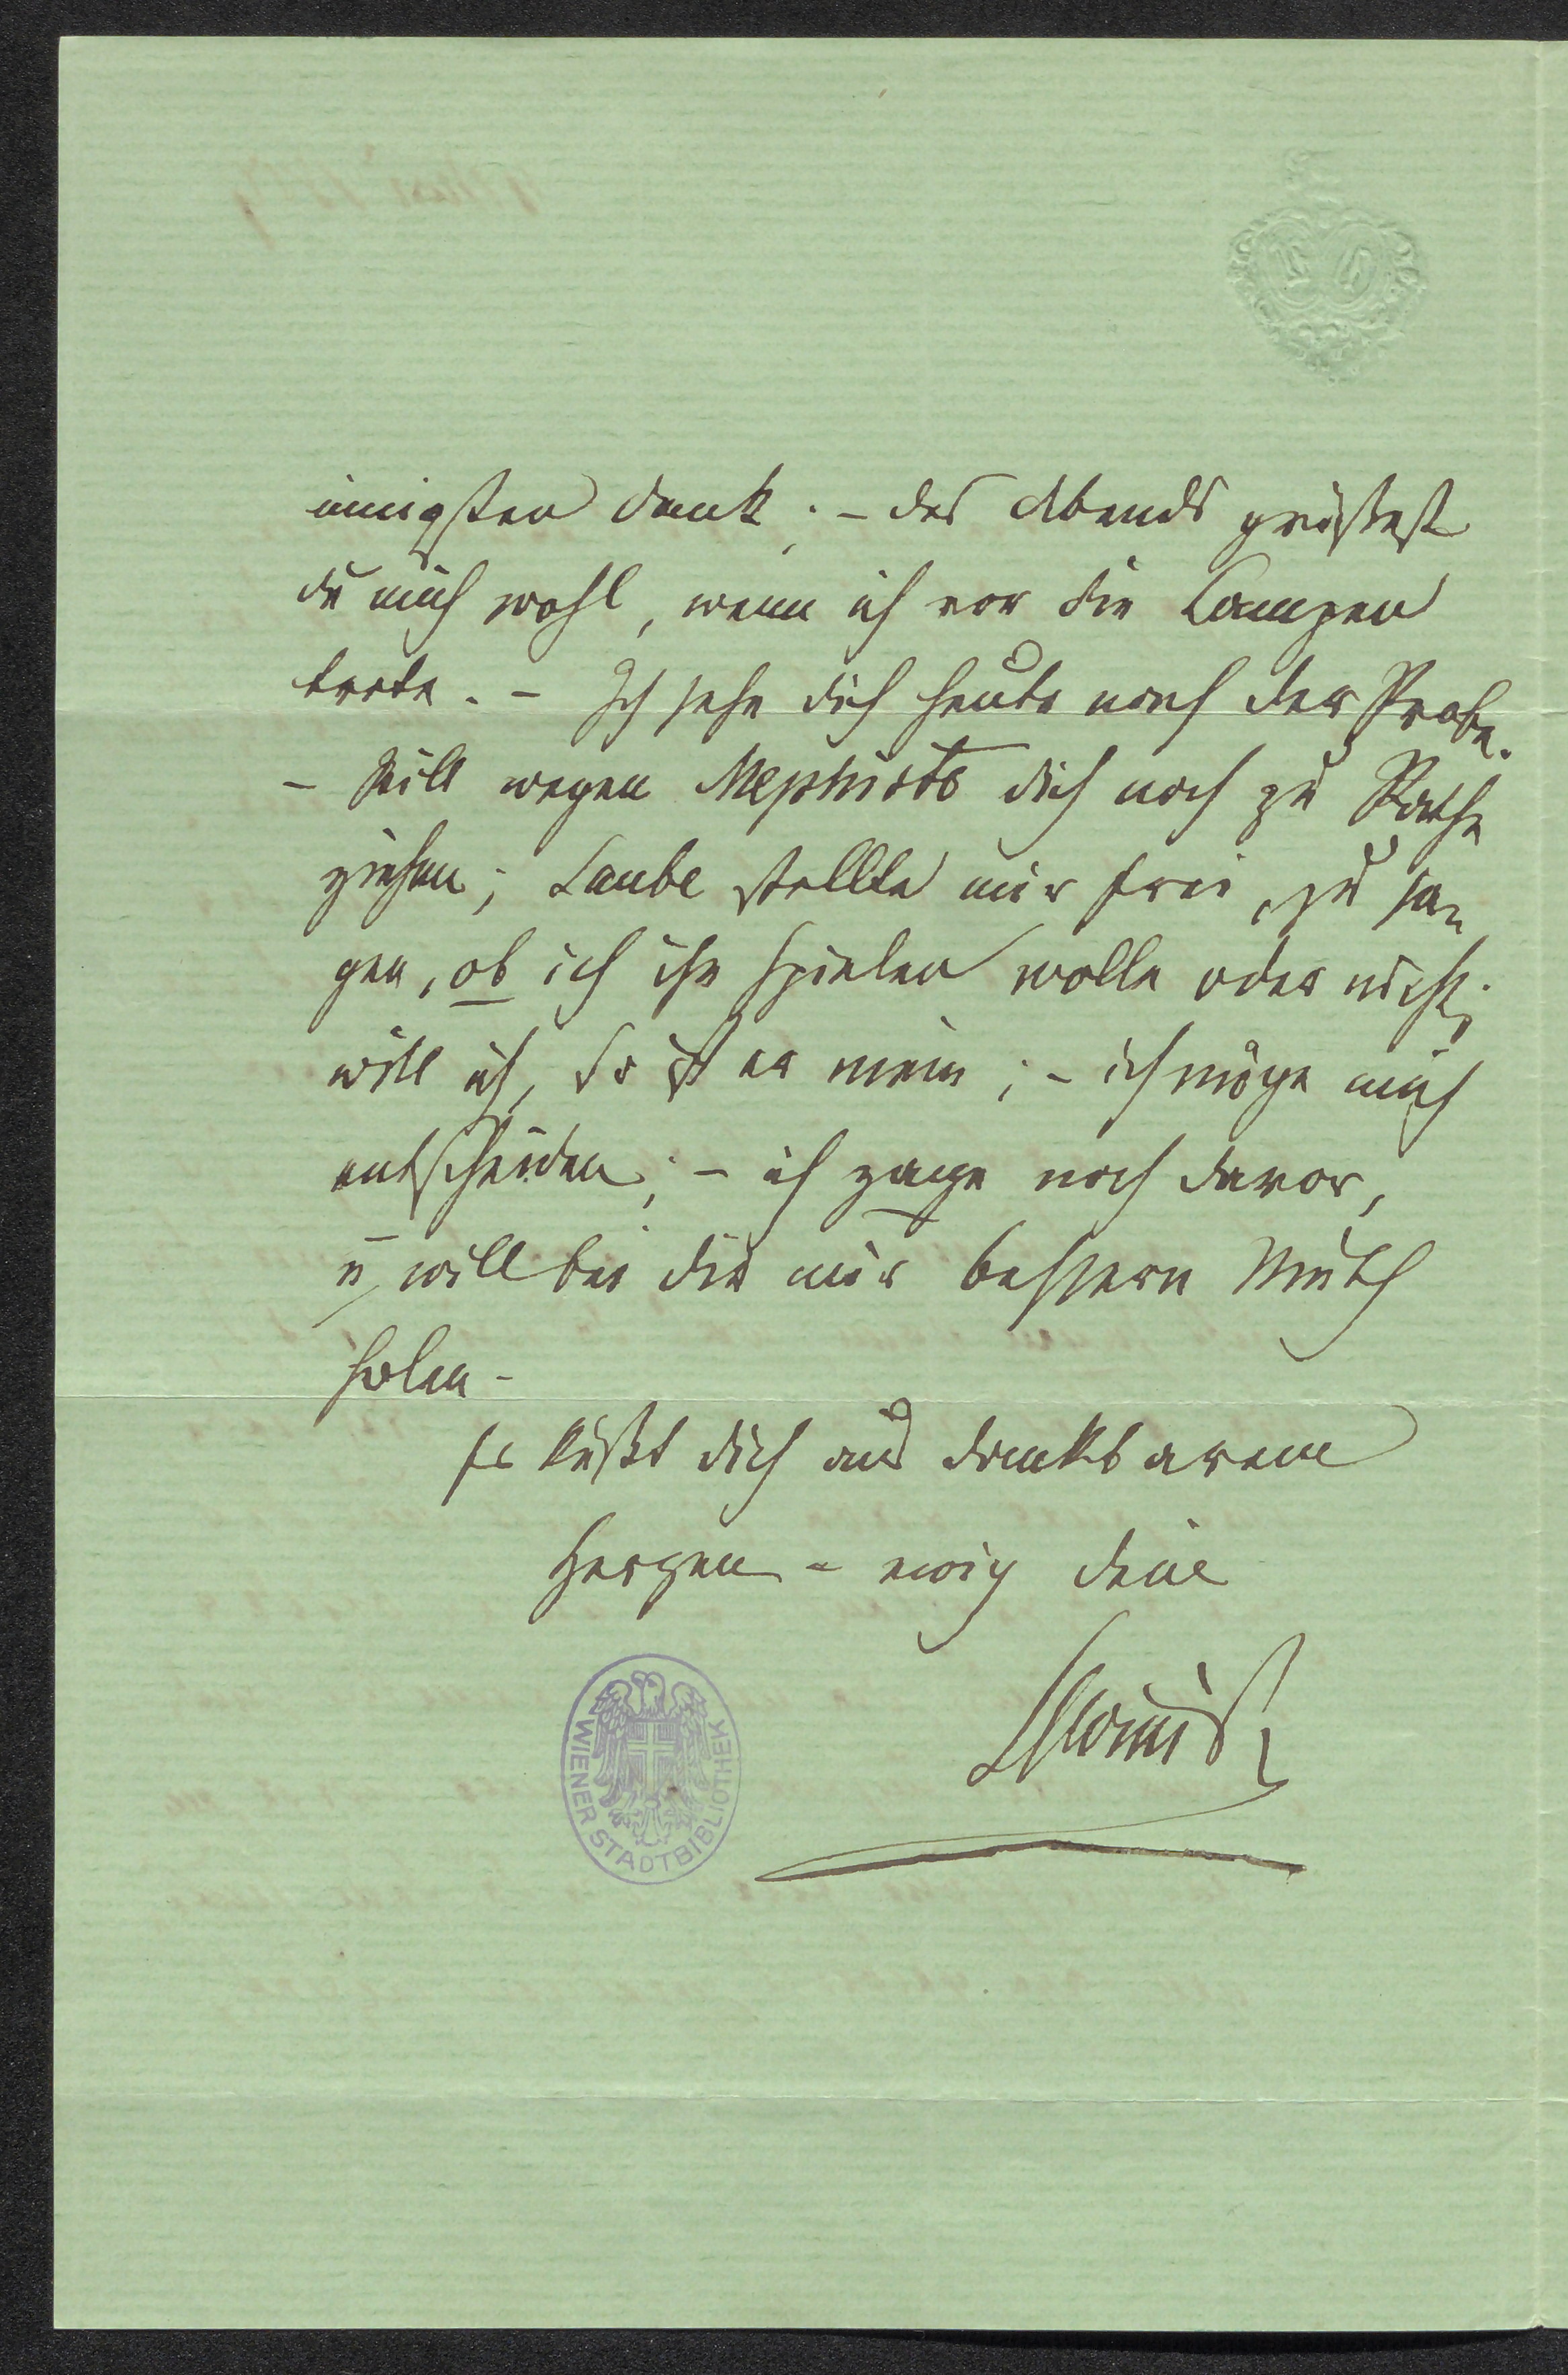 innigsten Dank; – des Abends grüßest
du mich wohl, wenn ich vor die Lampen
trete. – Ich sehe dich heute nach der Probe.
– Will wegen Mephisto dich noch zu Rathe
ziehen; Laube stellte mir frei, zu sa-
gen, ob ich ihn spielen wolle oder nicht;
will ich, so ist er mein; – ich möge mich
entscheiden; – ich zage noch davor,
u will bei dir mir bessern Muth
holen –
es küßt dich aus dankbarem
Herzen – ewig dein
WIENER STADTBIBLIOTHEK